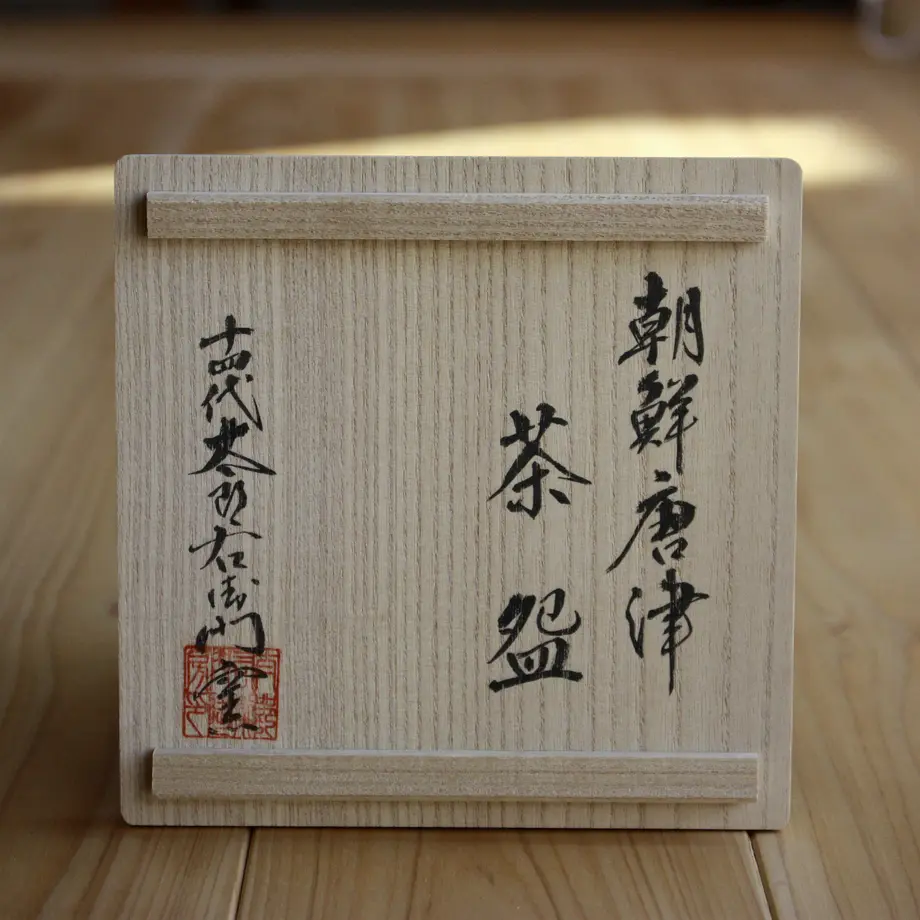 朝鮮唐津
茶盌
十四代太郎右衛門窯